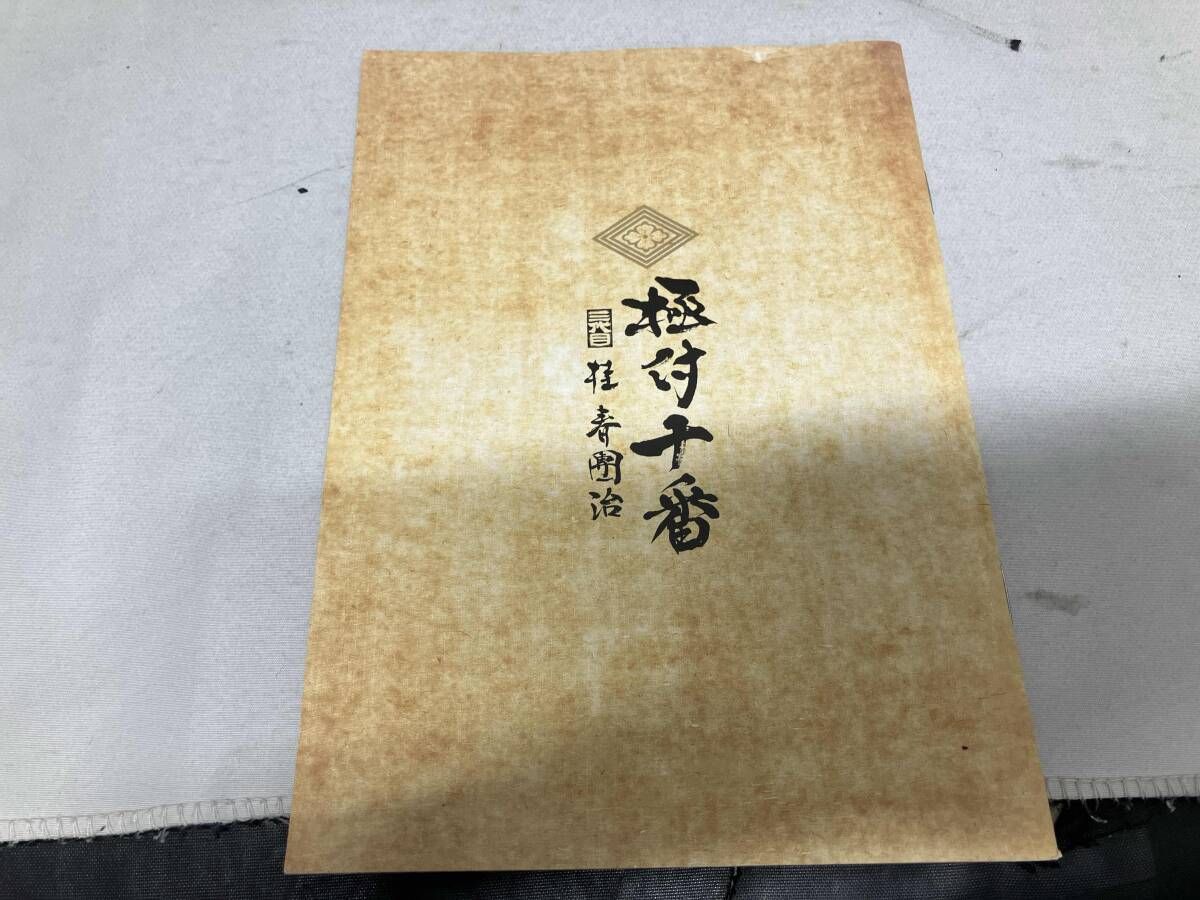 極付十番
三代目 桂春團治